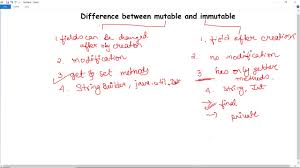 Difference between mutable and immutable
1. fields can be changed after obj creation
2. modification
3. get & set methods
4. StringBuilder, java.util.Date
1. field after creation
2. no modification
3. has only getter methods.
4. String, Int
→ final
→ private